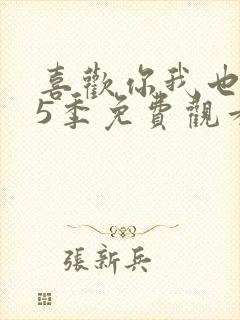 喜歡你我也
5季免費觀
張新兵